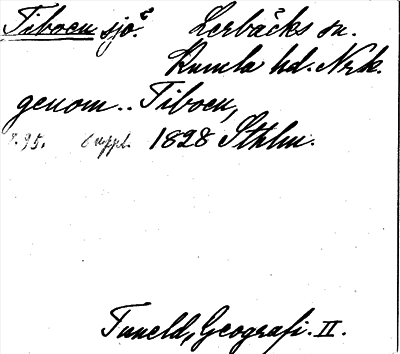 Tiboen sjö. Lerbäcks sn.
Kumla hd. Nrk.
genom.. Tiboen,
s. 95. 6 uppl. 1828 Sthlm.
Tuneld, Geografi. II.